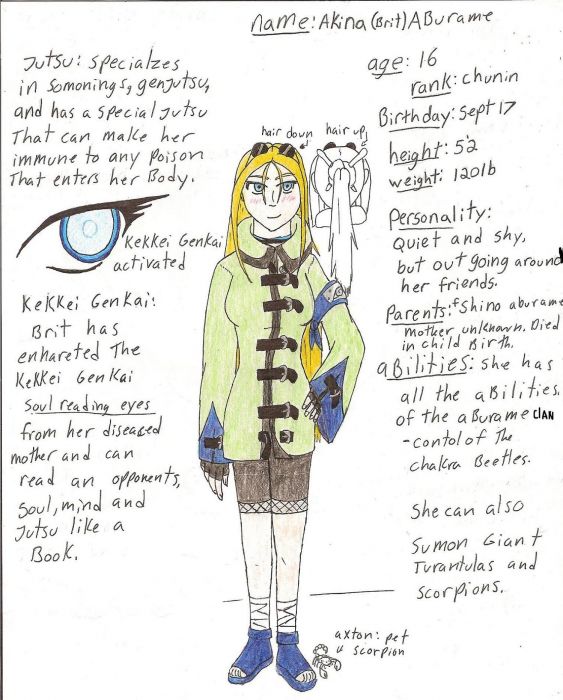 name: Akina (Brit) ABurame
Jutsu: Specialzes
in Somonings, genjutsu,
and has a special jutsu
That can make her
immune to any Poison
That enters her Body.
Kekkei Genkai
activated
Kekkei Genkai:
Brit has
enhareted The
Kekkei Genkai
Soul reading eyes
from her diseased
mother and can
read an opponents,
Soul, mind and
Jutsu like a
Book.
hair down
hair up
age: 16
rank: chunin
Birthday: Sept 17
height: 5'2
weight: 120lb
Personality:
Quiet and shy,
but out going around
her friends.
Parents: Shino aburame
mother unknown. Died
in child Birth.
aBilities: she has
all the aBilities.
of the aBurame clan
- contol of The
chakra Beetles.
She can also
Sumon Giant
Turantulas and
Scorpions.
axton: pet
scorpion